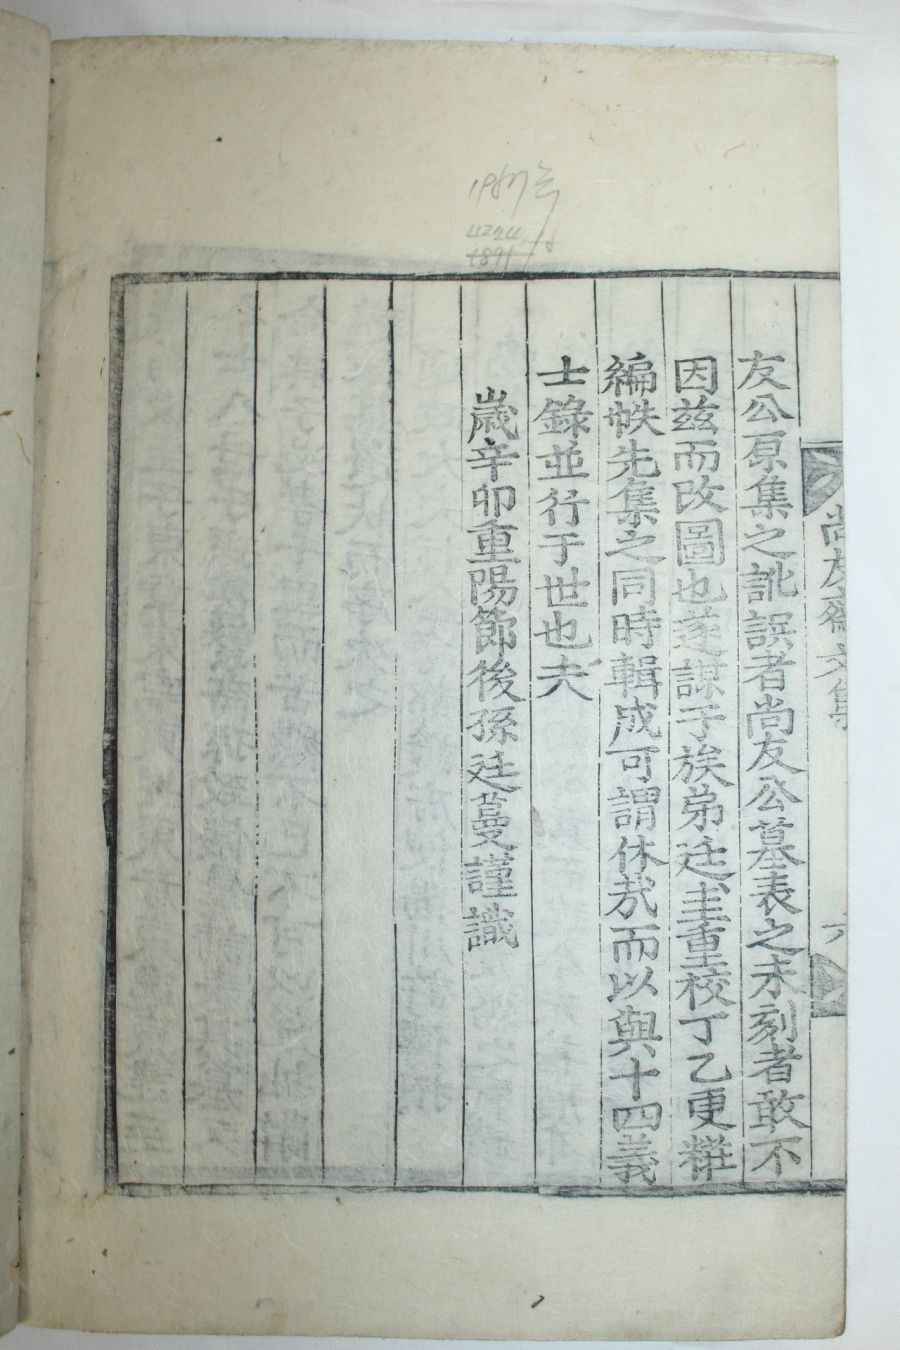 友公原集之訛誤者尚友公墓表之未刻者敢不
因玆而改圖也遂謀于族弟廷圭重校丁乙更釐
編帙先集之同時輯成可謂休哉而以與十四義
士錄並行于世也夫
歲辛卯重陽節後孫廷蔓謹識
尚友齋文集
六